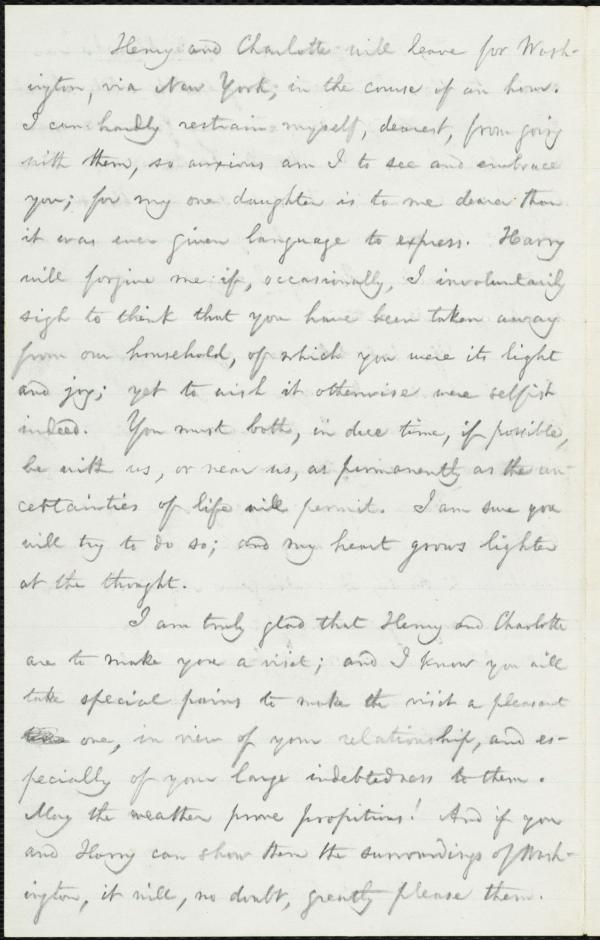 Henry and Charlotte will leave for Wash-
ington, via New York, in the course of an hour.
I can hardly restrain myself, dearest, from going
with them, so anxious am I to see and embrace
you; for my one daughter is to me dearer than
it was ever given language to express. Harry
will forgive me if, occasionally, I involuntarily
sigh to think that you have been taken away
from our household, of which you were its light
and joy; yet to wish it otherwise were selfish
indeed. You must both, in due time, if possible,
be with us, or near us, as permanently as the un-
certainties of life will permit. I am sure you
will try to do so; and my heart grows lighter
at the thought.
I am truly glad that Henry and Charlotte
are to make you a visit; and I know you will
take special pains to make the visit a pleasant
one, in view of your relationship, and es-
pecially of your large indebtedness to them.
May the weather prove propitious! And if you
and Harry can show them the surroundings of Wash-
ington, it will, no doubt, greatly please them.